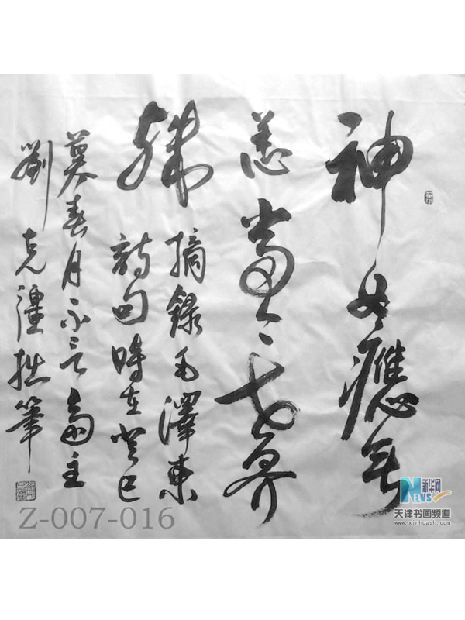 神女應無
恙當今世界
殊
摘錄毛澤東
詩句時在癸巳
暮春月不言齋主
劉克拙筆
Z-007-016
NEWS
新华网
天津书画频道